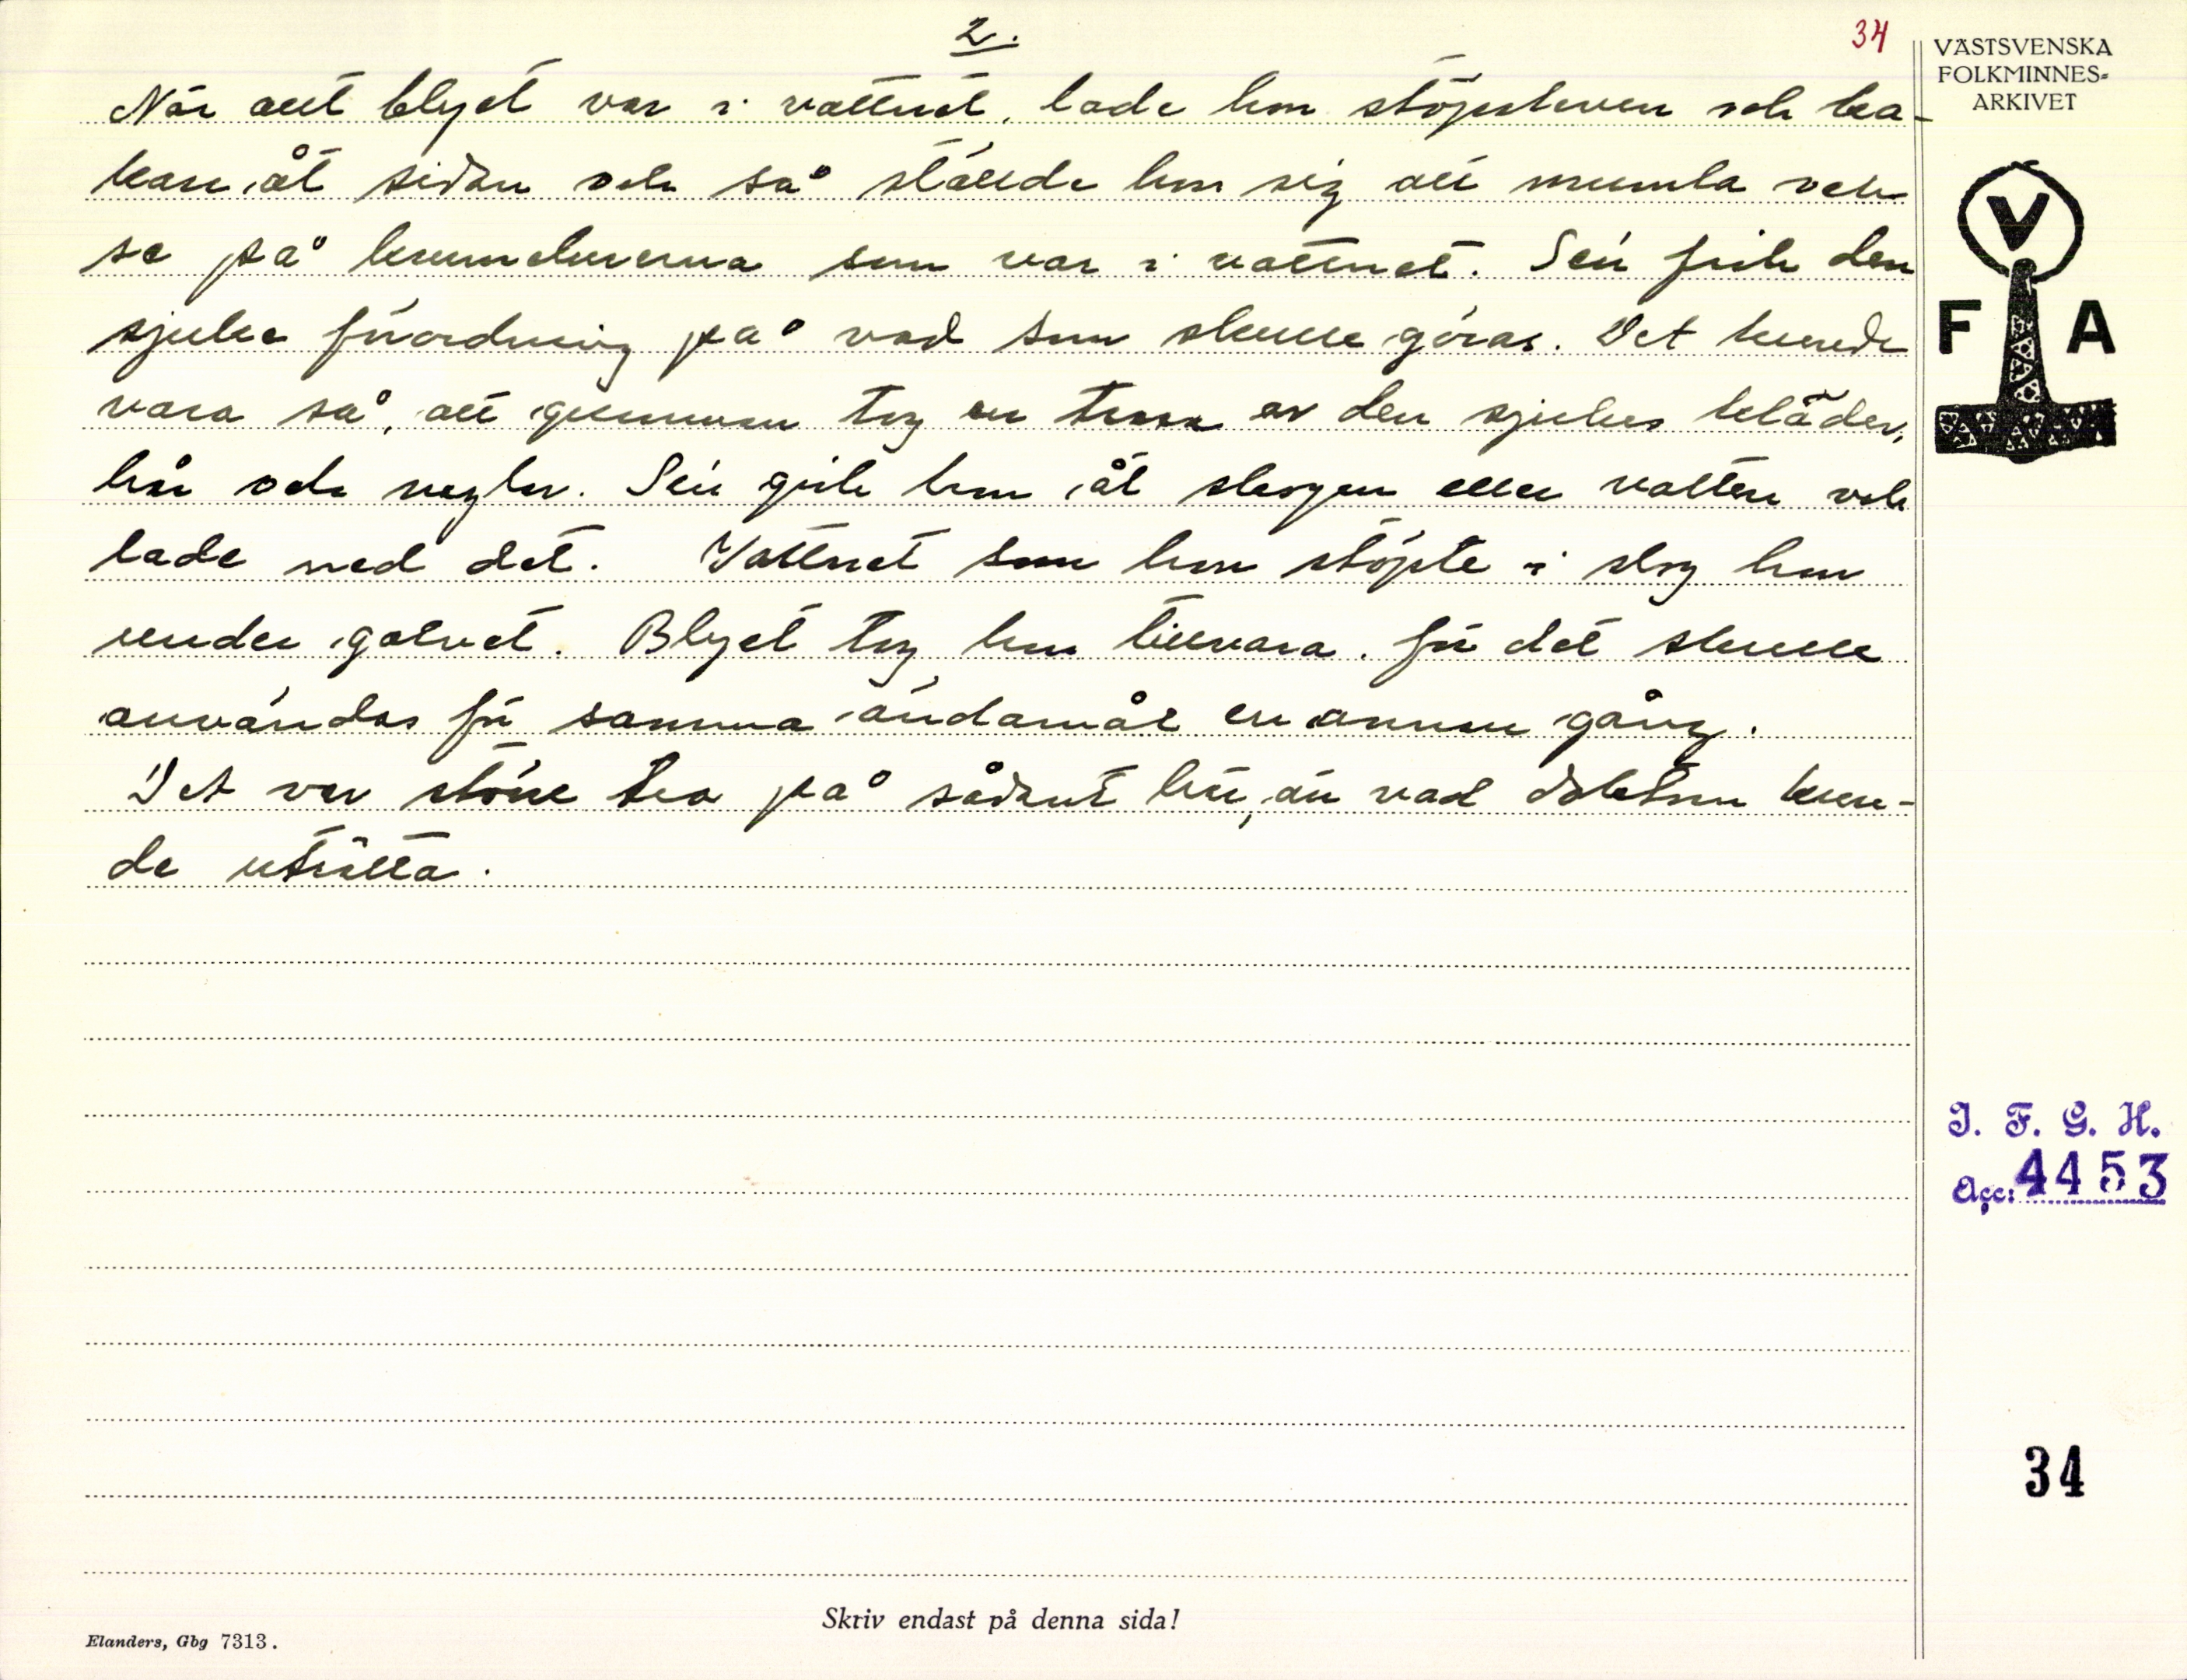 2.
34
När allt blyet var i vattnet, lade hon stöpsleven och ka-
kan åt sidan och så ställde hon sig att mumla och
se på krumelurerna som var i vattnet. Sen fick den
sjuke förordning på vad som skulle göras. Det kunde
vara så, att gumman tog en trasa av den sjukes kläder,
hår och naglar. Sen gick hon åt skogen eller vatten och
lade ned det. Vattnet som hon stöpte i slog hon
under golvet. Blyet tog hon tillvara. för det skulle
användas för samma ändamål en annan gång.
Det var större tro på sådant här, än vad doktorn kun-
de uträtta.
VÄSTSVENSKA
FOLKMINNES-
ARKIVET
V
F A
I. F. G. H.
Acc: 4453
34
Skriv endast på denna sida!
Elanders, Gbg 7313.